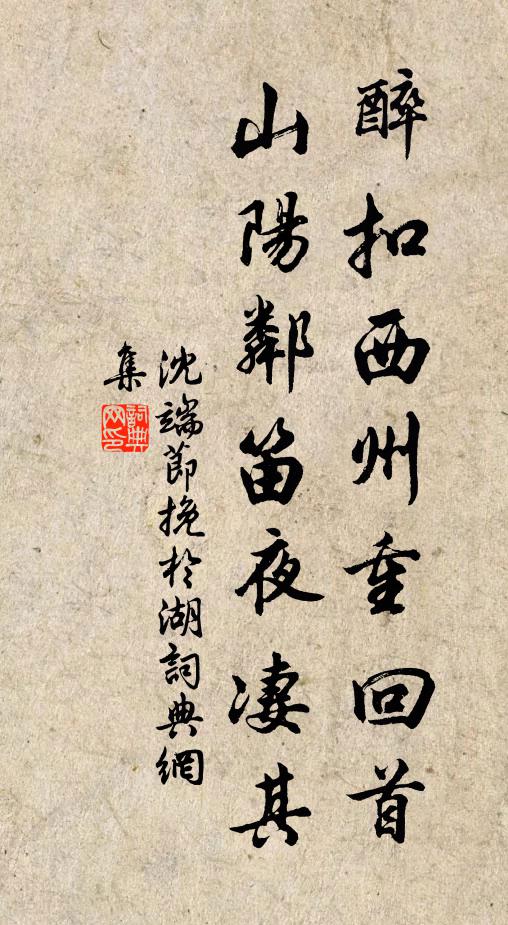 醉扣西州重回首
山陽鄰笛夜凄其
沈端節挽於湖詞典網
集
詞典網印